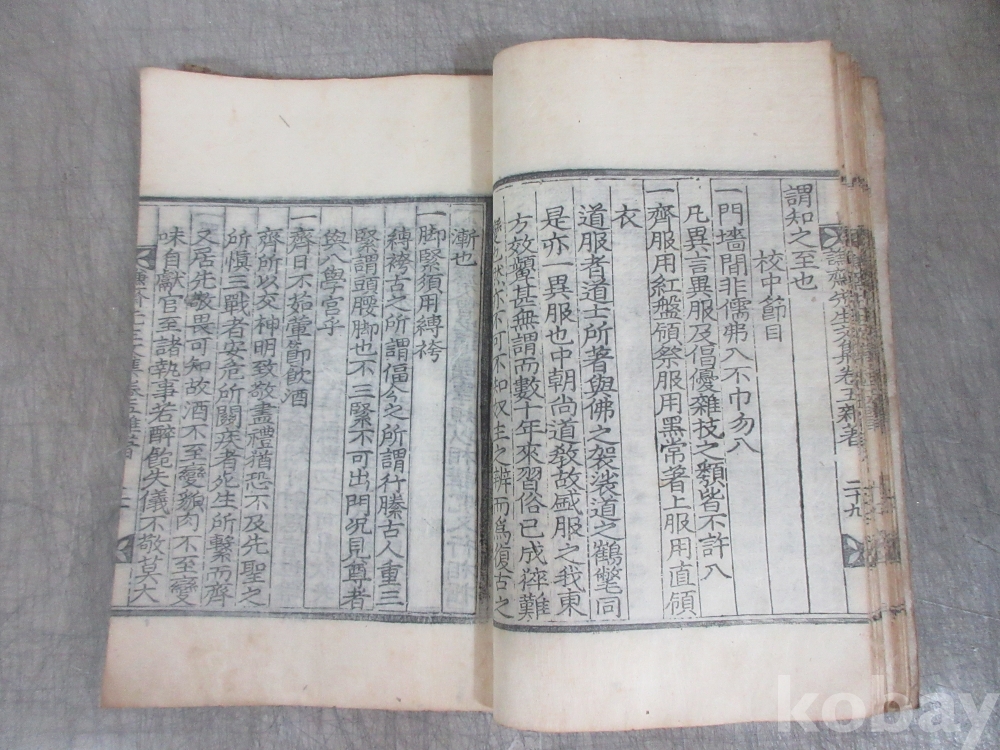 齋先生文集卷五雜著 二十九
謂知之至也
校中節目
一門墻間非儒弗入不巾勿入
凡異言異服及倡優雜技之類皆不許入
一齊服用紅盤領祭服用黑常著上服用直領
衣
道服者道士所著與佛之袈裟道之鶴氅同
是亦一異服也中朝尚道敎故盛服之我東
方效顰甚無謂而數十年來習俗已成猝難
不可不知奴主之辨而爲復古之
漸也
一脚緊須用縛袴
縛袴古之所謂偪今之所謂行縢古人重三
緊謂頭腰脚也不三緊不可出門況見尊者
與入學宮乎
一齊日不茹葷節飮酒
齊所以交神明致敬盡禮猶恐不及先聖之
所愼三戰者安危所關疾者死生所繫而齊
又居先敬畏可知故酒不至變貌肉不至變
味自獻官至諸執事若醉飽失儀不敬莫大
卷五雜著
kobay